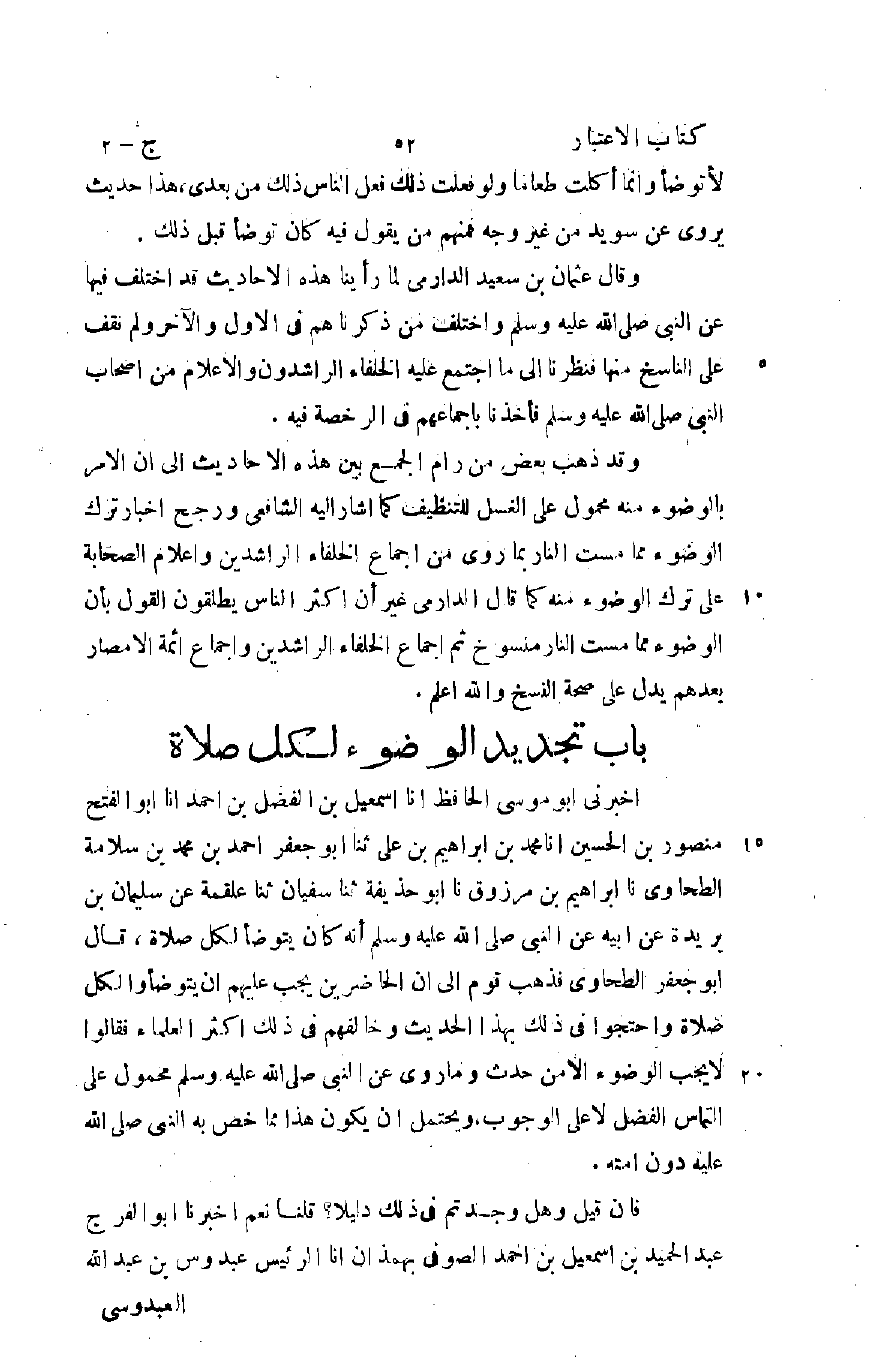 كتاب الاعتبار ٥٢ ج – ٢
لأتوضأ وانما أكلت طعاما ولو فعلت ذلك فعل الناس ذلك من بعدى، هذا حديث
يروى عن سويد من غير وجه فمنهم من يقول فيه كان توضأ قبل ذلك .
وقال عثمان بن سعيد الدارمى لما رأينا هذه الاحاديث قد اختلف فيها
عن النبى صلى الله عليه وسلم واختلف من ذكرنا هم فى الاول والآخر ولم نقف
على الناسخ منها فنظرنا الى ما اجتمع عليه الخلفاء الراشدون والاعلام من اصحاب ٥
النبى صلى الله عليه وسلم فأخذنا باجماعهم فى الرخصة فيه .
وقد ذهب بعض من رام الجمع بين هذه الاحاديث الى ان الامر
بالوضوء منه محمول على الغسل للتنظيف كما اشار اليه الشافعى ورجح اخبار ترك
الوضوء مما مست النار بما روى من اجماع الخلفاء الراشدين واعلام الصحابة
على ترك الوضوء منه كما قال الدارمى غير أن اكثر الناس يطلقون القول بأن ١٠
الوضوء مما مست النار منسوخ ثم اجماع الخلفاء الراشدين واجماع ائمة الامصار
بعدهم يدل على صحة النسخ والله اعلم .
باب تجديد الوضوء لكل صلاة
اخبرنى ابو موسى الحافظ انا اسمعيل بن الفضل بن احمد انا ابو الفتح
منصور بن الحسين انا محمد بن ابراهيم بن على ثنا ابو جعفر احمد بن محمد بن سلامة ١٥
الطحاوى نا ابراهيم بن مرزوق نا ابو حذيفة ثنا سفيان ثنا علقمة عن سليمان بن
بريدة عن ابيه عن النبى صلى الله عليه وسلم أنه كان يتوضأ لكل صلاة ، قال
ابو جعفر الطحاوى فذهب قوم الى ان الحاضرين يجب عليهم ان يتوضأوا لكل
صلاة واحتجوا فى ذلك بهذا الحديث وخالفهم فى ذلك اكثر العلماء فقالوا
لايجب الوضوء الا من حدث وما روى عن النبى صلى الله عليه وسلم محمول على ٢٠
التماس الفضل لا على الوجوب، ويحتمل ان يكون هذا مما خص به النبى صلى الله
عليه دون امته .
فان قيل وهل وجدتم فى ذلك دليلا؟ قلنا نعم اخبرنا ابو الفرج
عبد الحميد بن اسمعيل بن احمد الصوفى بهمذان انا الرئيس عبدوس بن عبد الله
العبدوسى